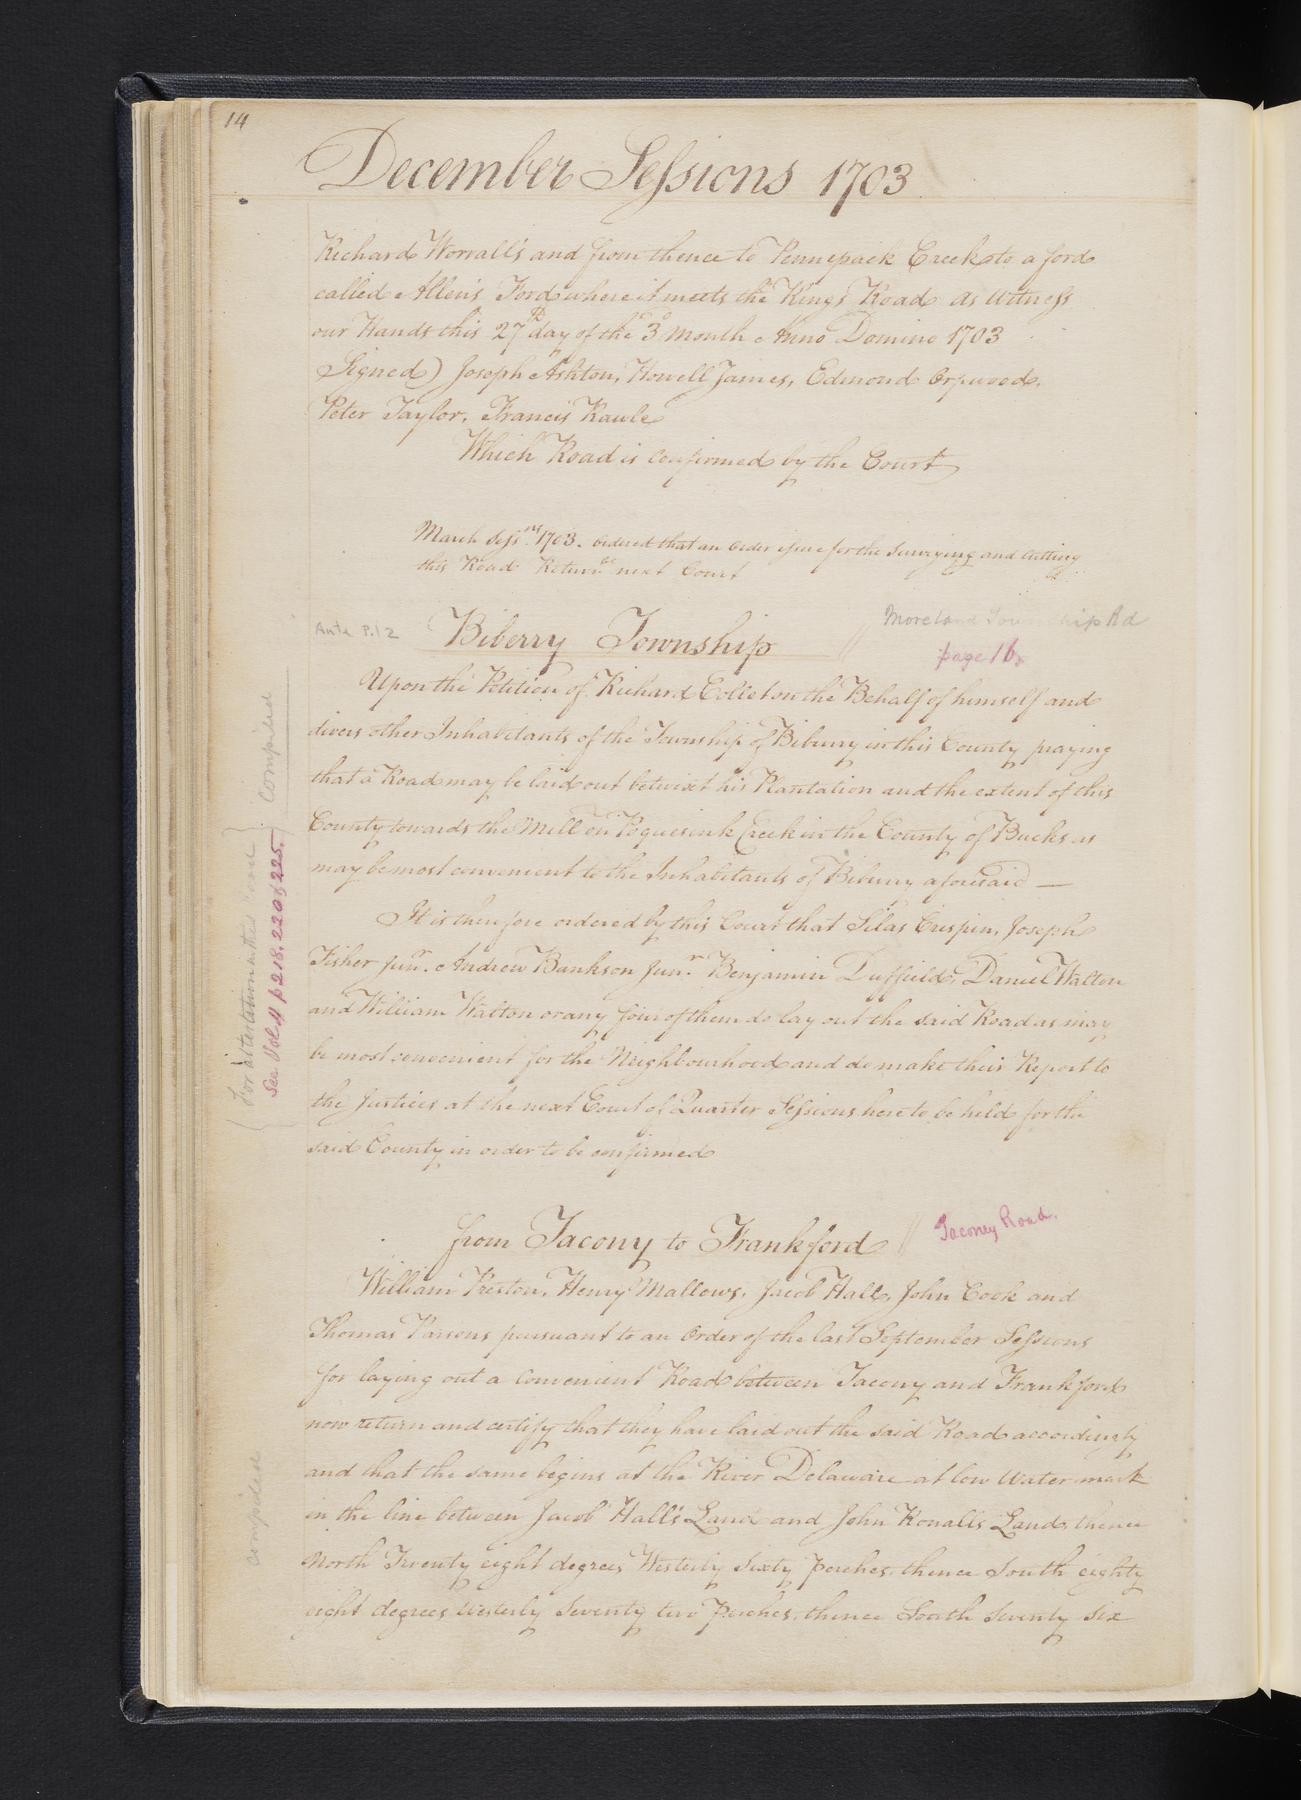 14
December Sessions 1703
Richard Worrall's and from thence to Pennepack Creek to a ford
called Allen's Ford where it meets the Kings Road As Witness
our Hands this 27th day of the 3o Month Anno Domino 1703
Signed) Joseph Ashton, Howell James, Edmond Orpwood,
Peter Taylor, Francis Rawle
Which Road is confirmed by the Court
March Sessns 1703. ordered that an order issue for the Surveying and Cutting
this Road Returnble next Court
Ante P.12
Biberry Township
Moreland Township Rd
page 16.
Upon the Petition of Richard on the Behalf of himself and
divers other Inhabitants of the Township of Biberry in this County praying
that a Road may be laid out betwixt his Plantation and the extent of this
County towards the Mill on Poquesink Creek in the County of Bucks as
may be most convenient to the Inhabitants of Biberry aforesaid —
It is therefore ordered by this Court that Silas Crispin, Joseph
Fisher junr. Andrew Bankson Junr. Benjamin Duffield, Daniel Walton
and William Walton or any four of them do lay out the said Road as may
be most convenient for the Neighbourhood and do make their Report to
the Justices at the next Court of Quarter Sessions here to be held for the
said County in order to be confirmed
Compiled
(For alterations in this road)
See Vol 4 p 218, 220 & 225.
from Tacony to Frankford
Taconey Road.
William Preston, Henry Mallows, Jacob Hall, John Cook and
Thomas Parsons pursuant to an Order of the last September Sessions
for laying out a Convenient Road between Tacony and Frankford
now return and certify that they have laid out the said Road accordingly
and that the same begins at the River Delaware at low Water mark
in the line between Jacob Hall's Land and John Konall's Land, thence
North Twenty eight degrees Westerly Sixty Perches, thence South eighty
eight degrees Westerly Seventy two Perches, thence South Seventy Six
compiled